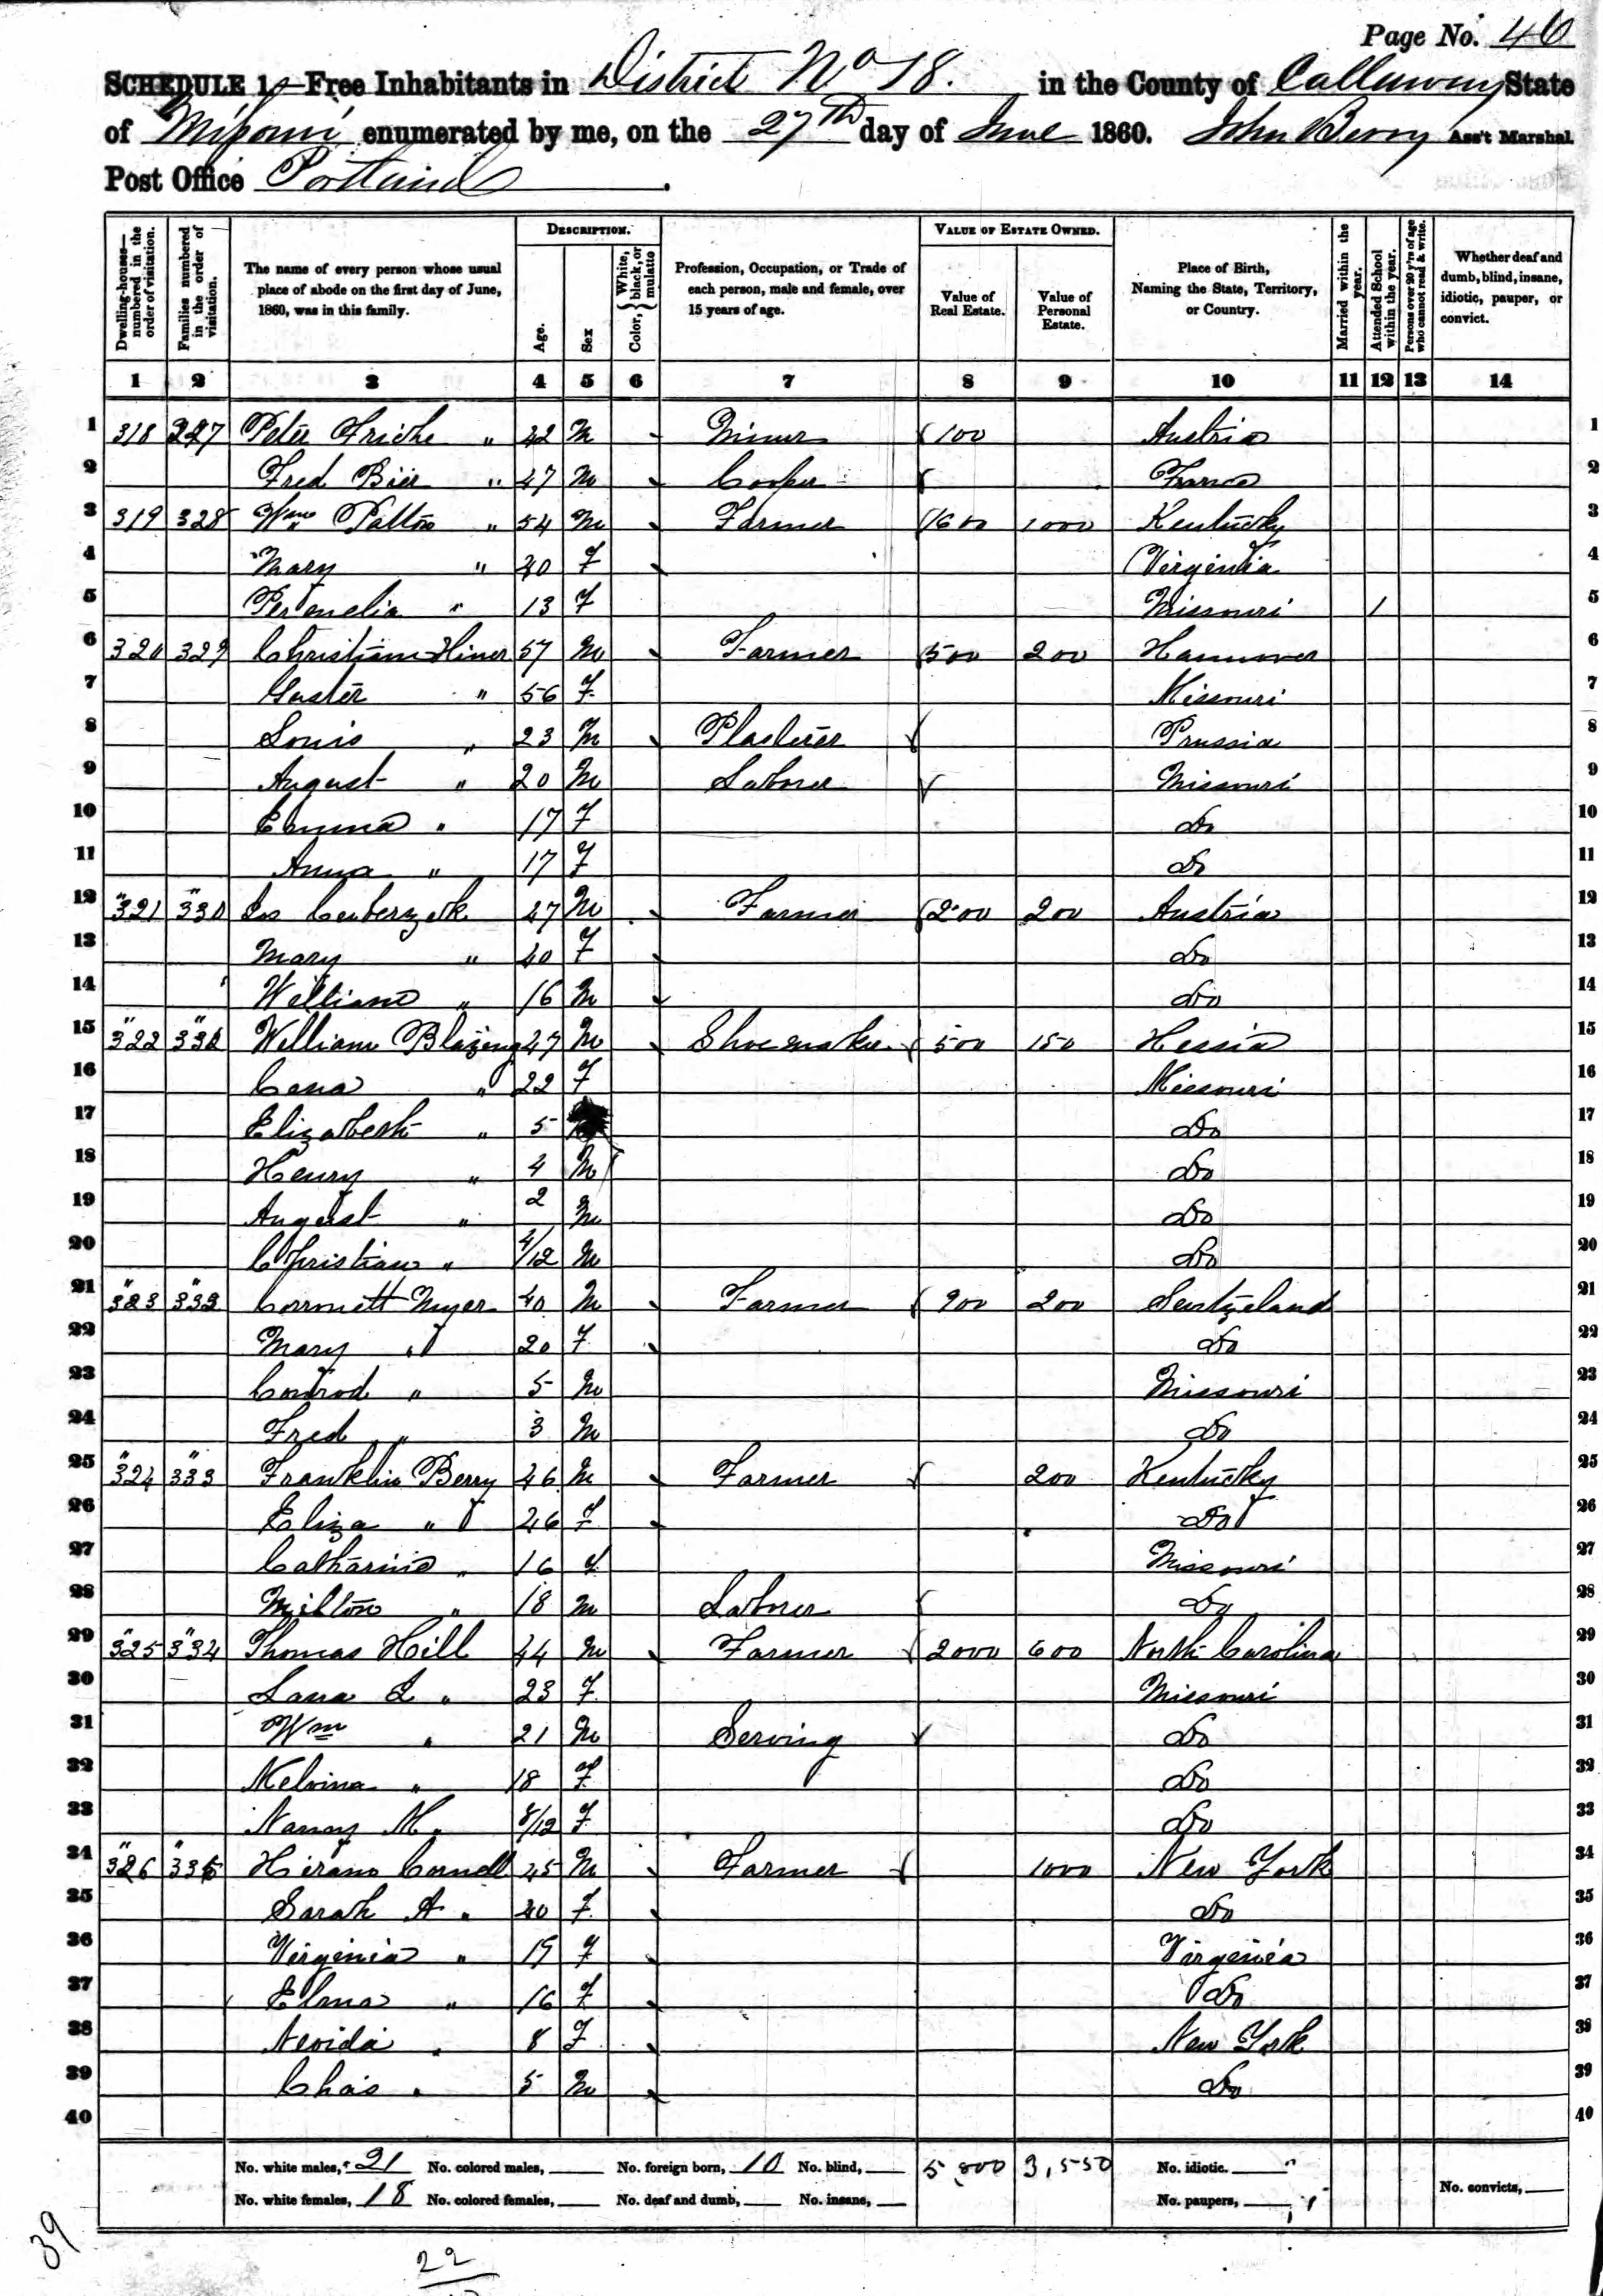 Page No. 40
SCHEDULE 1.—Free Inhabitants in District No 18. in the County of Callaway State
of Missouri enumerated by me, on the 27th day of June 1860. John Berry Ass't Marshal.
Post Office Portland.
Dwelling-houses—numbered in the order of visitation.
Families numbered in the order of visitation.
The name of every person whose usual place of abode on the first day of June, 1860, was in this family.
DESCRIPTION.
Age.
Sex
Color, { White, black, or mulatto
Profession, Occupation, or Trade of each person, male and female, over 15 years of age.
VALUE OF ESTATE OWNED.
Value of Real Estate.
Value of Personal Estate.
Place of Birth, Naming the State, Territory, or Country.
Married within the year.
Attended School within the year.
Persons over 20 y'rs of age who cannot read & write.
Whether deaf and dumb, blind, insane, idiotic, pauper, or convict.
1 2 3 4 5 6 7 8 9 10 11 12 13 14
1 318 Peter " 42 M 100 Austria 1
2 Fred Bier " 47 M Cooper France 2
3 319 328 Wm Patton " 54 M Farmer 1600 1000 Kentucky 3
4 Mary " 40 F Virginia 4
5 Permelia " 13 F Missouri 1 5
6 320 329 Christian Hiner 57 M Farmer 500 200 Hannover 6
7 " 56 F Missouri 7
8 Louis " 23 M Plasterer Prussia 8
9 August " 20 M Laborer Missouri 9
10 Emma " 17 F Do 10
11 Anna " 17 F Do 11
12 " 321 " 330 47 M Farmer 200 200 Austria 12
13 Mary " 40 F Do 13
14 William " 16 M Do 14
15 " 322 " 331 William Blazing 47 M Shoemaker 500 150 Hessia 15
16 Cena " 22 F Missouri 16
17 Elizabeth " 5 Do 17
18 Henry " 4 M Do 18
19 August " 2 M Do 19
20 Christian " 4/12 M Do 20
21 " 323 " 332 Myer 40 M Farmer 900 200 21
22 Mary " 20 F Do 22
23 Conrod " 5 M Missouri 23
24 Fred " 3 M Do 24
25 " 324 " 333 Franklin Berry 46 M Farmer 200 Kentucky 25
26 Eliza " 46 F Do 26
27 Catharine " 16 f Missouri 27
28 Milton " 18 M Laborer Do 28
29 " 325 " 334 Thomas Hill 44 M Farmer 2000 600 North Carolina 29
30 L " 23 F Missouri 30
31 Wm " 21 M Serving Do 31
32 Melvina " 18 F Do 32
33 Nancy M. 8/12 F Do 33
34 " 326 " 335 Hiram Cornell 45 M Farmer 1000 New York 34
35 Sarah A " 40 F Do 35
36 Virginia " 19 F Virginia 36
37 " 16 F Do 37
38 Nevida " 8 F New York 38
39 Chas " 5 M Do 39
40 40
No. white males, 21 No. colored males, No. foreign born, 10 No. blind, 5,800 3,550 No. idiotic.
No. white females, 18 No. colored females, No. deaf and dumb, No. insane, No. paupers, No. convicts,
39
22